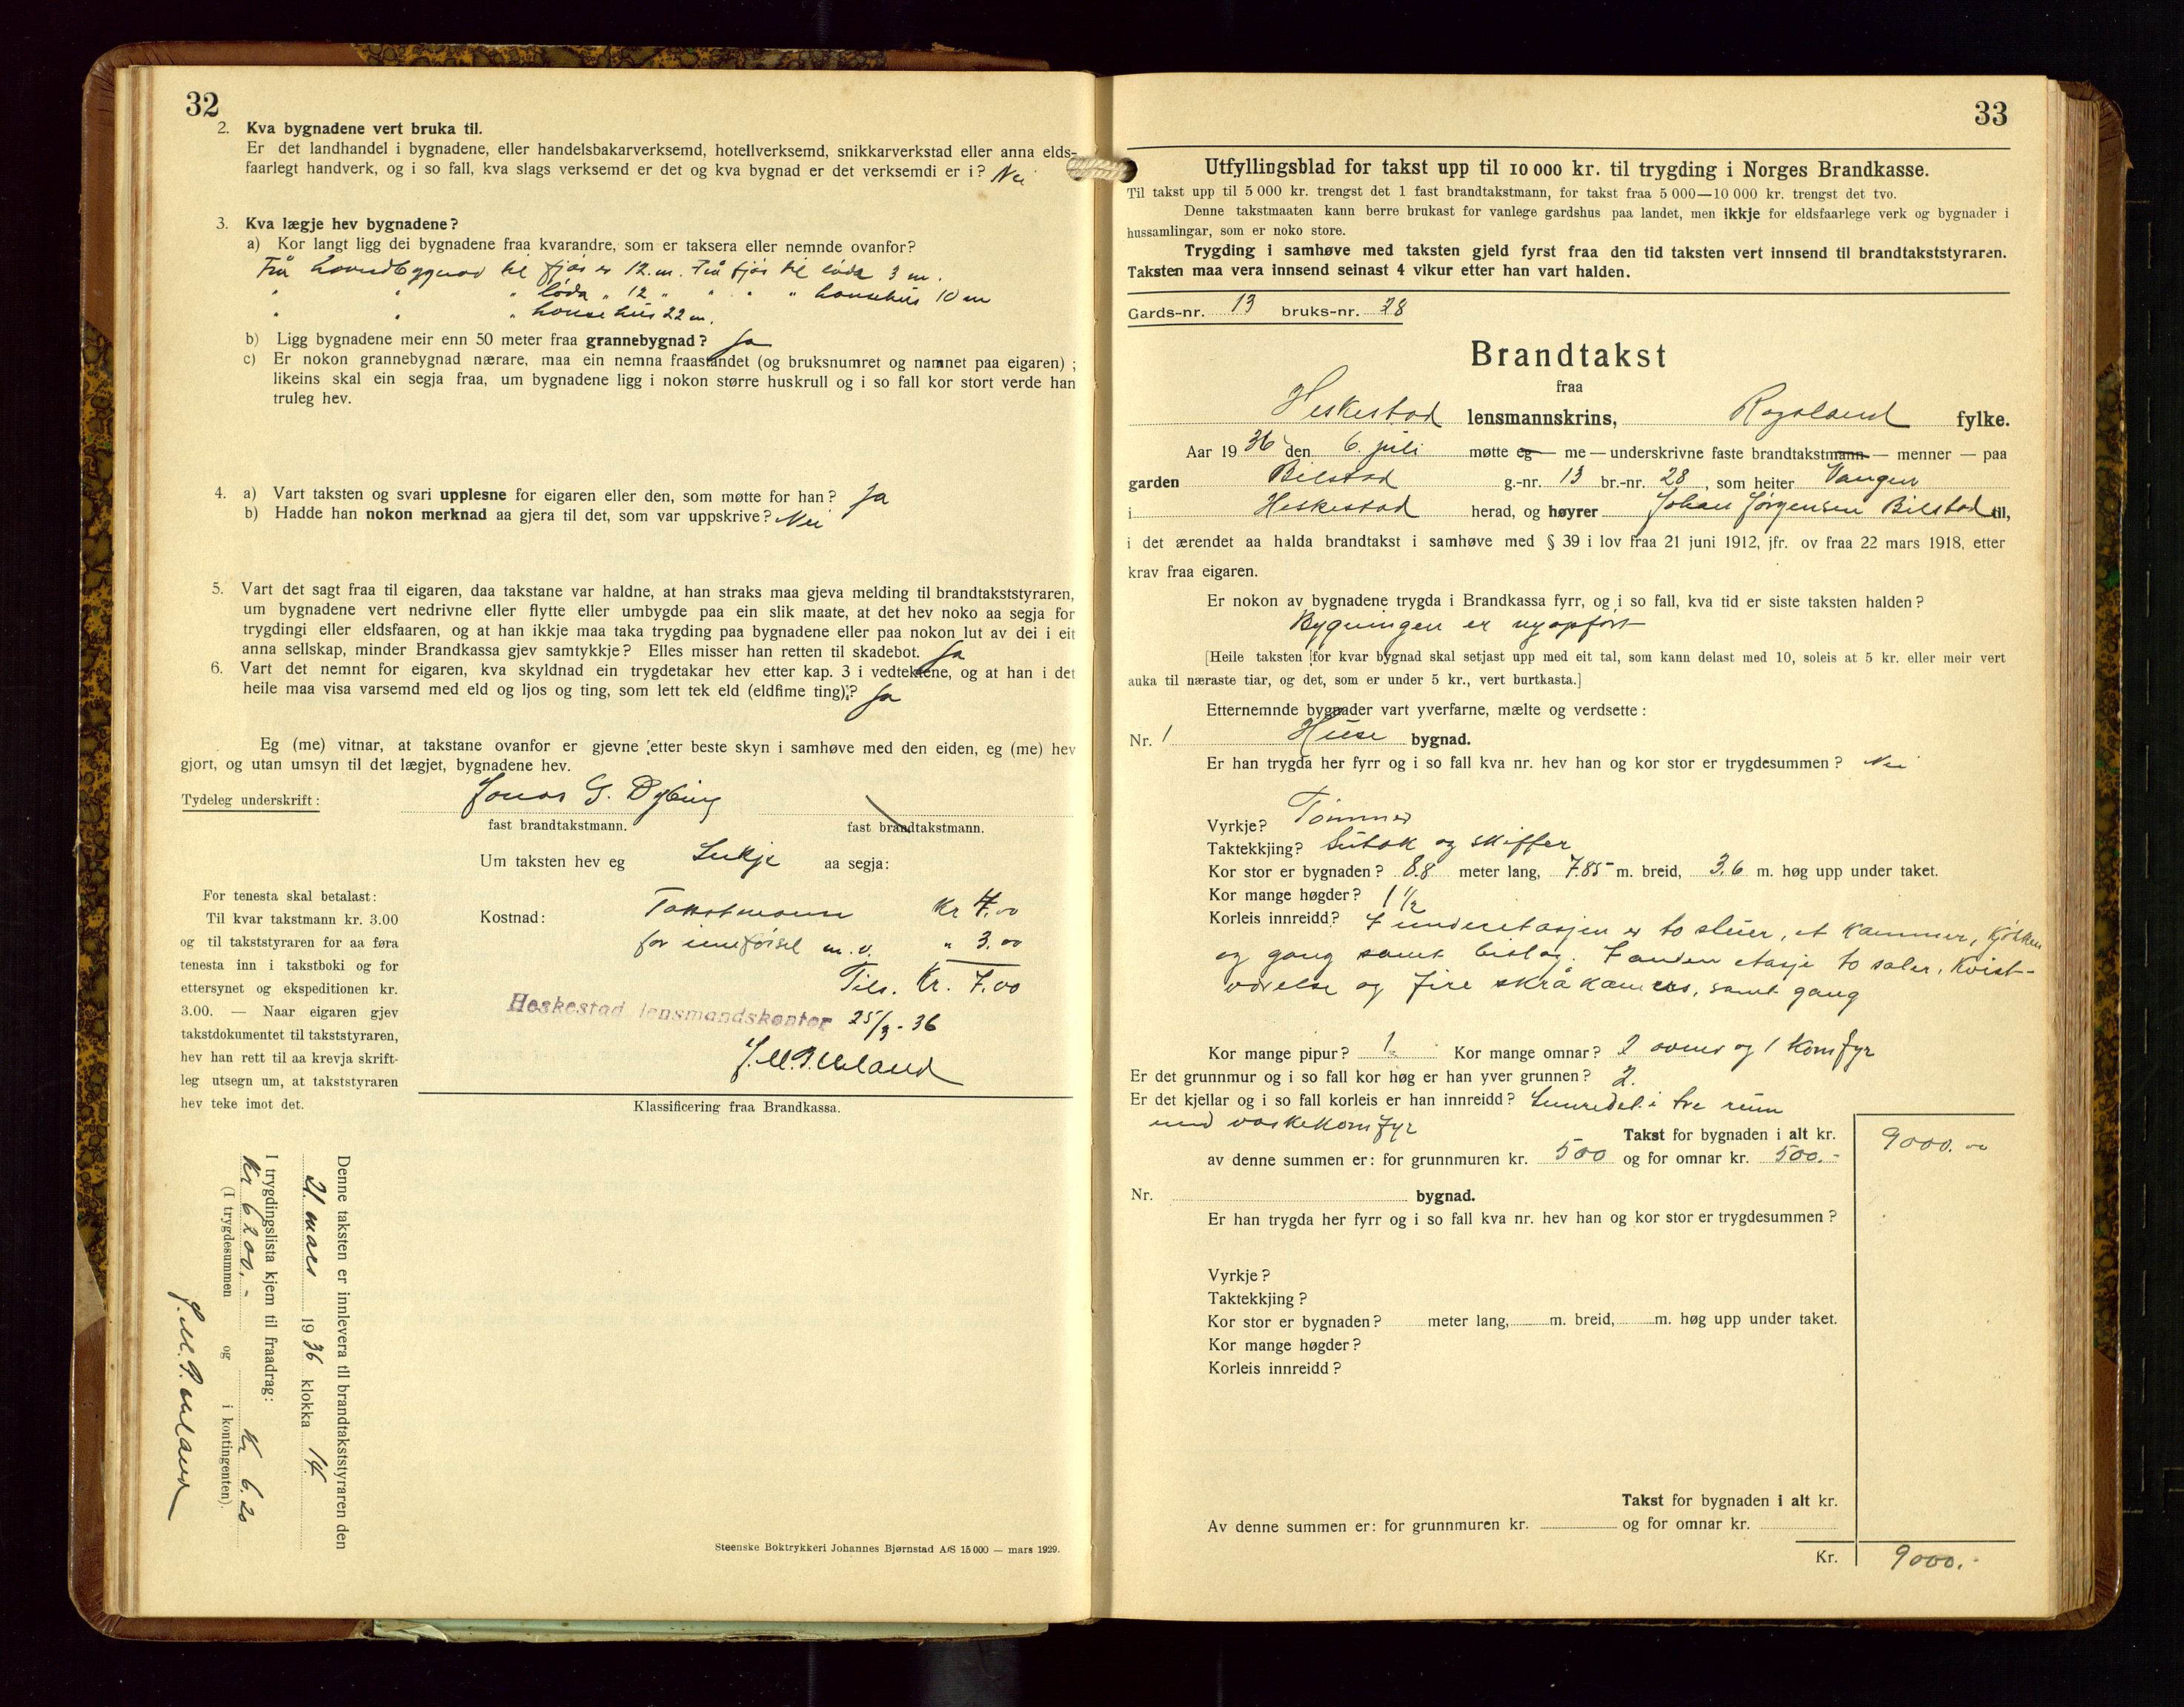 32
2. Kva bygnadene vert bruka til.
Er det landhandel i bygnadene, eller handelsbakarverksemd, hotellverksemd, snikkarverkstad eller anna elds-
faarlegt handverk, og i so fall, kva slags verksemd er det og kva bygnad er det verksemdi er i? Nei
3. Kva lægje hev bygnadene?
a) Kor langt ligg dei bygnadene fraa kvarandre, som er taksera eller nemnde ovanfor?
Frå hovudbygnad til fjós er 12. m. Frå fjós til löda 3 m.
" " " löda " 12 " " " " hönsehus 10 m
" " " hönsehus 22 m.
b) Ligg bygnadene meir enn 50 meter fraa grannebygnad? Ja
c) Er nokon grannebygnad nærare, maa ein nemna fraastandet (og bruksnumret og namnet paa eigaren) ;
likeins skal ein segja fraa, um bygnadene ligg i nokon større huskrull og i so fall kor stort verde han
truleg hev.
4. a) Vart taksten og svari upplesne for eigaren eller den, som møtte for han? Ja
b) Hadde han nokon merknad aa gjera til det, som var uppskrive? Nei
5. Vart det sagt fraa til eigaren, daa takstane var haldne, at han straks maa gjeva melding til brandtakststyraren,
um bygnadene vert nedrivne eller flytte eller umbygde paa ein slik maate, at det hev noko aa segja for
trygdingi eller eldsfaaren, og at han ikkje maa taka trygding paa bygnadene eller paa nokon lut av dei i eit
anna sellskap, minder Brandkassa gjev samtykkje? Elles misser han retten til skadebot. Ja
6. Vart det nemnt for eigaren, kva skyldnad ein trygdetakar hev etter kap. 3 i vedtektene, og at han i det
heile maa visa varsemd med eld og ljos og ting, som lett tek eld (eldfime ting)? Ja
Eg (me) vitnar, at takstane ovanfor er gjevne etter beste skyn i samhøve med den eiden, eg (me) hev
gjort, og utan umsyn til det lægjet, bygnadene hev.
Tydeleg underskrift: Jonas G. Dybing
fast brandtakstmann. fast brandtakstmann.
Um taksten hev eg Inkje aa segja:
For tenesta skal betalast:
Til kvar takstmann kr. 3.00
og til takststyraren for aa føra
tenesta inn i takstboki og for
ettersynet og ekspeditionen kr.
3.00. — Naar eigaren gjev
takstdokumentet til takststyraren,
hev han rett til aa krevja skrift-
leg utsegn um, at takststyraren
hev teke imot det.
Kostnad: Takstmann Kr 4.00
for inneförsel m. v. " 3.00
Tils. Kr. 7.00
Heskestad lensmandskontor 25/3-36
Klassificering fraa Brandkassa.
Denne taksten er innlevera til brandtakststyraren den
21. mars 1936 klokka 14.
I trygdingslista kjem til fraadrag:
Kr 6200,- Kr 6.20
(I trygdesummen og i kontingenten).
Steenske Boktrykkeri Johannes Bjørnstad A/S 15000 — mars 1929.
33
Utfyllingsblad for takst upp til 10 000 kr. til trygding i Norges Brandkasse.
Til takst upp til 5 000 kr. trengst det 1 fast brandtakstmann, for takst fraa 5 000—10 000 kr. trengst det tvo.
Denne takstmaaten kann berre brukast for vanlege gardshus paa landet, men ikkje for eldsfaarlege verk og bygnader i
hussamlingar, som er noko store.
Trygding i samhøve med taksten gjeld fyrst fraa den tid taksten vert innsend til brandtakststyraren.
Taksten maa vera innsend seinast 4 vikur etter han vart halden.
Gards-nr. 13 bruks-nr. 28
Brandtakst
fraa
Heskestad lensmannskrins, Rogaland fylke.
Aar 1936 den 6. juli møtte eg — me — underskrivne faste brandtakstmann — menner — paa
garden Bilstad g.-nr. 13 br.-nr. 28, som heiter Vangen
i Heskestad herad, og høyrer Johan Jørgensen Bilstad til,
i det ærendet aa halda brandtakst i samhøve med § 39 i lov fraa 21 juni 1912, jfr. ov fraa 22 mars 1918, etter
krav fraa eigaren.
Er nokon av bygnadene trygda i Brandkassa fyrr, og i so fall, kva tid er siste taksten halden?
Bygningen er nyopfört
[Heile taksten for kvar bygnad skal setjast upp med eit tal, som kann delast med 10, soleis at 5 kr. eller meir vert
auka til næraste tiar, og det, som er under 5 kr., vert burtkasta.]
Etternemnde bygnader vart yverfarne, mælte og verdsette:
Nr. 1 Huse bygnad.
Er han trygda her fyrr og i so fall kva nr. hev han og kor stor er trygdesummen? Nei
Vyrkje? Tömmer
Taktekkjing? Sutak og skiffer
Kor stor er bygnaden? 8.8 meter lang, 7.85 m. breid, 3.6 m. høg upp under taket.
Kor mange høgder? 1 1/2
Korleis innreidd? I underetasjen er to stuer, et kammer, kjökken
og gang samt bislag. I anden etasje to saler, kvist-
værelse og fire skråkamers, samt gang
Kor mange pipur? 1 Kor mange omnar? 2 ovner og 1 komfyr
Er det grunnmur og i so fall kor høg er han yver grunnen? 2.
Er det kjellar og i so fall korleis er han innreidd? Innredet i tre rum
med vaskekomfyr
Takst for bygnaden i alt kr. 9000.00
av denne summen er: for grunnmuren kr. 500 og for omnar kr. 500.-
Nr. bygnad.
Er han trygda her fyrr og i so fall kva nr. hev han og kor stor er trygdesummen?
Vyrkje?
Taktekkjing?
Kor stor er bygnaden? meter lang, m. breid, m. høg upp under taket.
Kor mange høgder?
Korleis innreidd?
Takst for bygnaden i alt kr.
Av denne summen er: for grunnmuren kr. og for omnar kr.
Kr. 9000.-